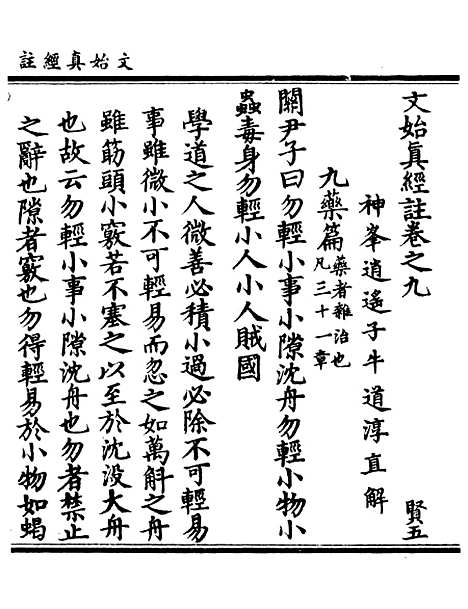 文始真經註
文始眞經註卷之九　賢五
神峯逍遙子牛道淳直解
九藥篇藥者雜治也
凡三十一章
關尹子曰勿輕小事小隙沈舟勿輕小物小
蟲毒身勿輕小人小人賊國
學道之人微善必積小過必除不可輕易
事雖微小不可輕易而忽之如萬斛之舟
雖筯頭小竅若不塞之以至於沈没大舟
也故云勿輕小事小隙沈舟也勿者禁止
之辭也隙者竅也勿得輕易於小物如蝎